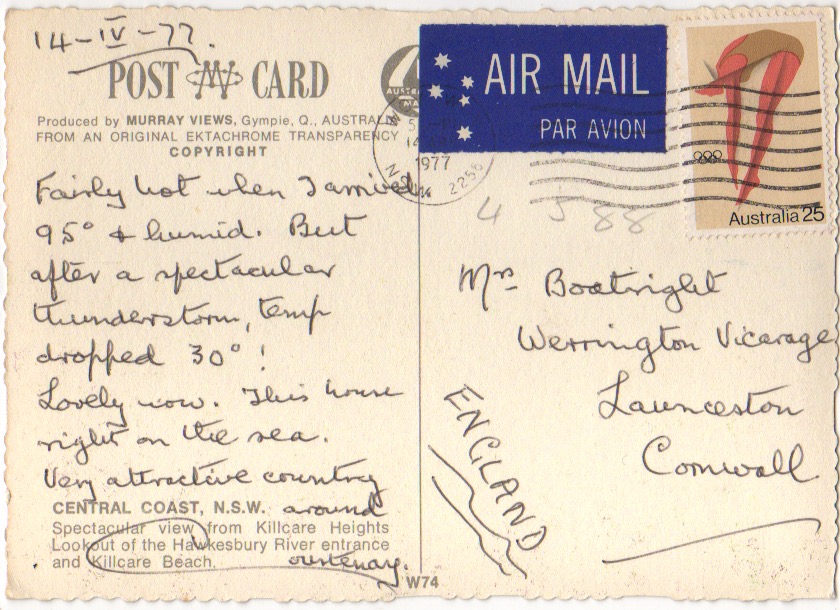 14-IV-77.
POST CARD
Produced by MURRAY VIEWS, Gympie, Q., AUSTRALIA
FROM AN ORIGINAL EKTACHROME TRANSPARENCY
COPYRIGHT
Fairly hot when I arrived
95° & humid. But
after a spectacular
thunderstorm, temp
dropped 30°!
Lovely now. This house
right on the sea.
Very attractive country
around
CENTRAL COAST, N.S.W.
Spectacular view from Killcare Heights
Lookout of the Hawkesbury River entrance
and Killcare Beach.
W74
AIR MAIL
PAR AVION
1977
2256
Australia 25
4 5 88
Mrs Boatright
Werrington Vicarage
Launceston
Cornwall
ENGLAND